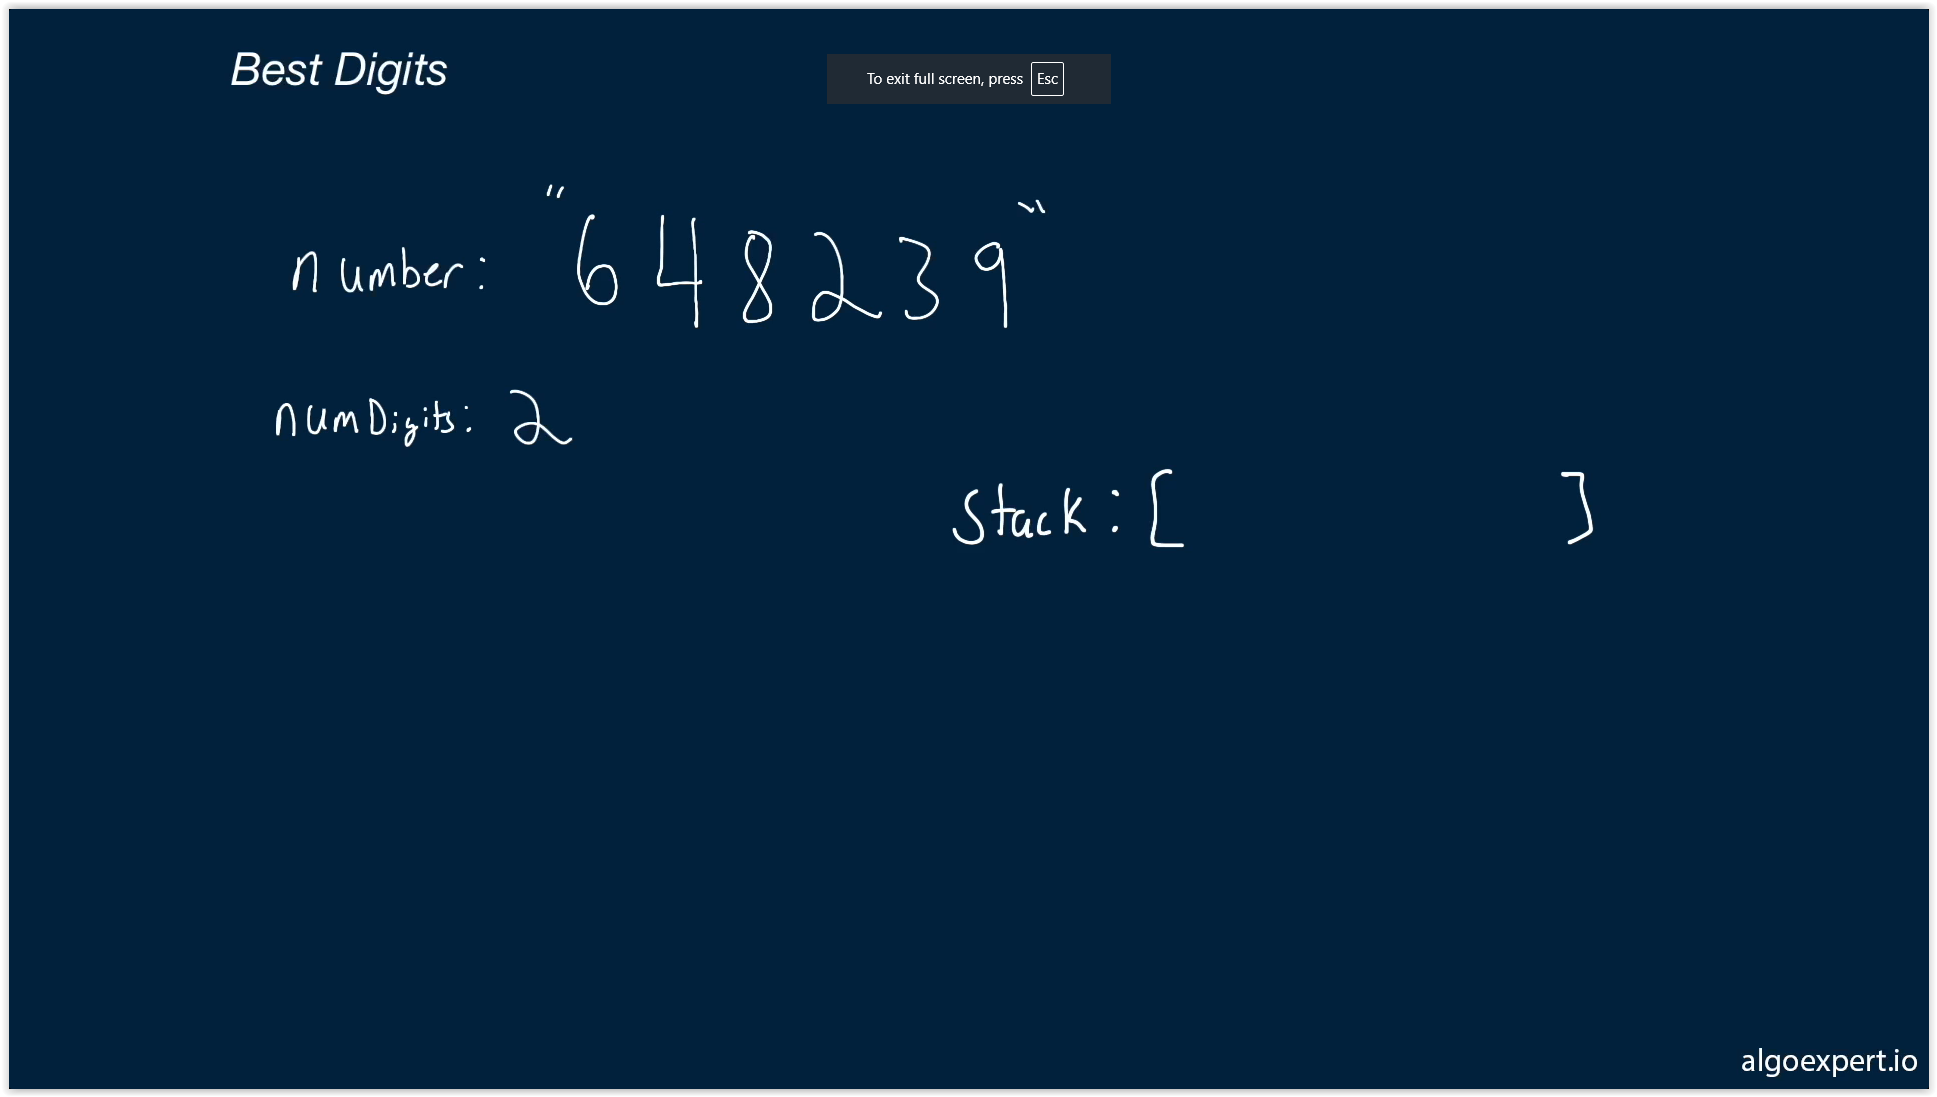 Best Digits
To exit full screen, press Esc
number: "648239"
numDigits: 2
Stack: [ ]
algoexpert.io